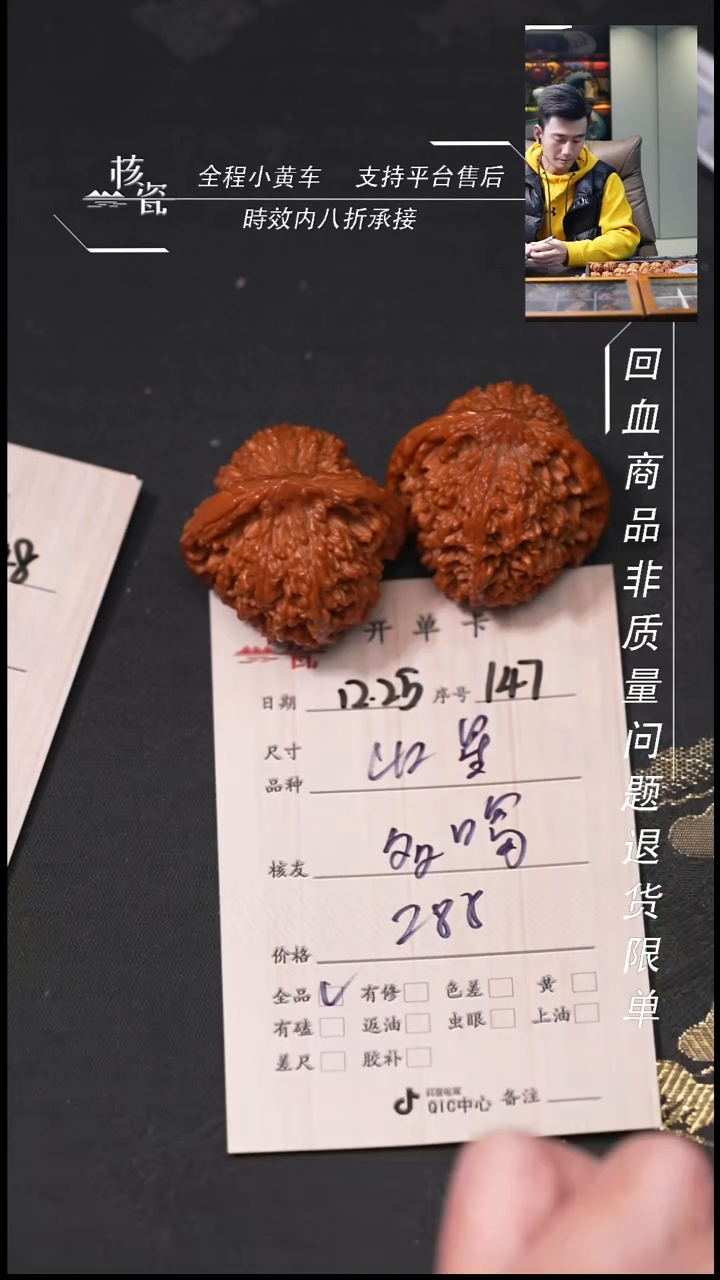 核瓷
全程小黄车 支持平台售后
時效内八折承接
回血商品非质量问题退货限单
开单卡
日期 12.25 序号 147
尺寸
品种
核友
288
价格
全品 有修 色差 黄
有磕 返油 虫眼 上油
差尺 胶补
抖音电商
QIC中心 备注